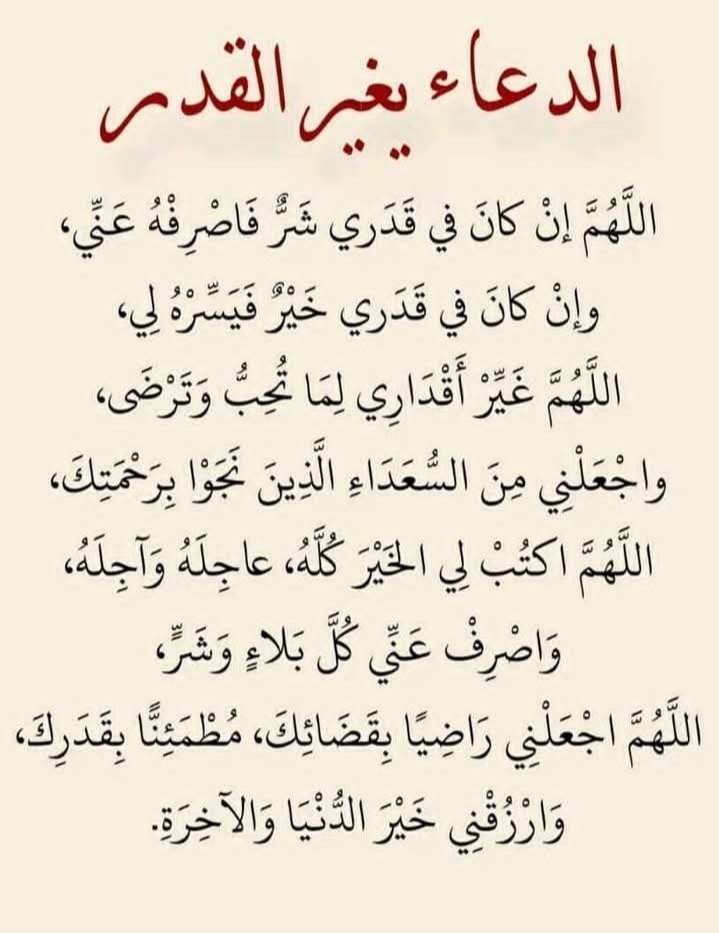 الدعاء يغير القدر
اللَّهُمَّ إِنْ كَانَ فِي قَدَرِي شَرٌّ فَاصْرِفْهُ عَنِّي،
وإِنْ كَانَ فِي قَدَرِي خَيْرٌ فَيَسِّرْهُ لِي،
اللَّهُمَّ غَيِّرْ أَقْدَارِي لِمَا تُحِبُّ وَتَرْضَى،
واجْعَلْنِي مِنَ السُّعَدَاءِ الَّذِينَ نَجَوْا بِرَحْمَتِكَ،
اللَّهُمَّ اكتُبْ لِي الخَيْرَ كُلَّهُ، عاجِلَهُ وَآجِلَهُ،
وَاصْرِفْ عَنِّي كُلَّ بَلاءٍ وَشَرٍّ،
اللَّهُمَّ اجْعَلْنِي رَاضِيًا بِقَضَائِكَ، مُطْمَئِنًّا بِقَدَرِكَ،
وَارْزُقْنِي خَيْرَ الدُّنْيَا وَالآخِرَةِ.